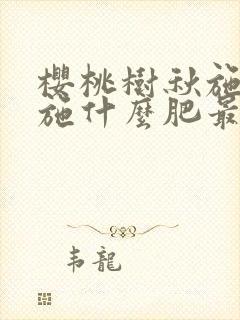 櫻桃樹秋施
施什麼肥最
韦龍